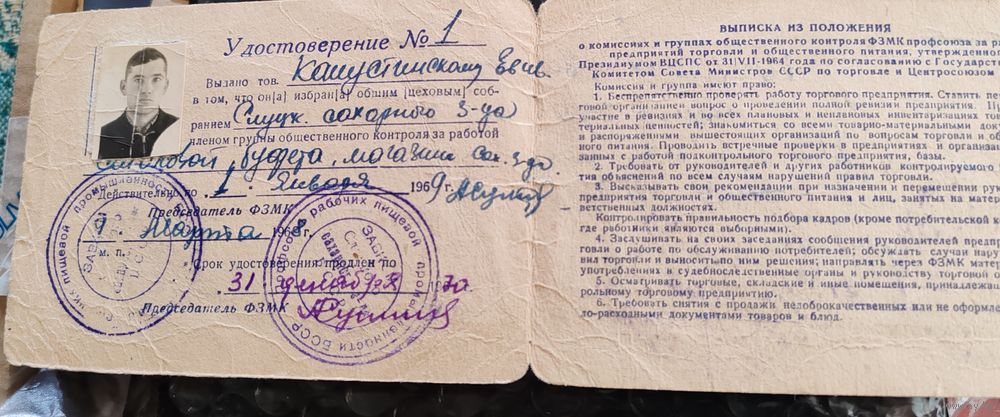 Удостоверение № 1
Выдано тов. Капустинскому Евг.
в том, что он[а] избран[а] общим [цеховым] соб-
ранием Слуцк. сахарного з-да
членом группы общественного контроля за работой
столовой, буфета, магазин сах. з-да.
Действительно по 1 Января 1969 г.
Председатель ФЗМК
9 Марта 1968 г.
м. п.
Срок удостоверения продлен по
31 декабря 70
Председатель ФЗМК
рабочих пищевой
БССР
ВЫПИСКА ИЗ ПОЛОЖЕНИЯ
о комиссиях и группах общественного контроля ФЗМК профсоюза за ра
предприятий торговли и общественного питания, утвержденног
Президиумом ВЦСПС от 31/VII-1964 года по согласованию с Государст
Комитетом Совета Министров СССР по торговле и Центросоюзом
Комиссия и группа имеют право:
1. Беспрепятственно проверять работу торгового предприятия. Ставить пе
говой организацией вопрос о проведении полной ревизии предприятия.
участие в ревизиях и во всех плановых и неплановых инвентаризациях то
териальных ценностей; знакомиться со всеми товарно-материальными док
и распоряжениями вышестоящих организаций по вопросам торговли и об
ного питания. Проводить встречные проверки в предприятиях и организа
занных с работой подконтрольного торгового предприятия, базы.
2. Требовать от руководителей и других работников контролируемого
тия объяснений по всем случаям нарушений правил торговли.
3. Высказывать свои рекомендации при назначении и перемещении рук
предприятия торговли и общественного питания и лиц, занятых на мате
ветственных должностях.
Контролировать правильность подбора кадров (кроме потребительской к
где работники являются выборными).
4. Заслушивать на своих заседаниях сообщения руководителей предпр
говли о работе по обслуживанию потребителей; обсуждать случаи нару
вил торговли и выносить по ним решения; направлять через ФЗМК мате
употреблениях в судебноследственные органы и руководству торговой о
5. Осматривать торговые, складские и иные помещения, принадлежа
рольному торговому предприятию.
6. Требовать снятия с продажи недоброкачественных или не оформле
но-расходными документами товаров и блюд.